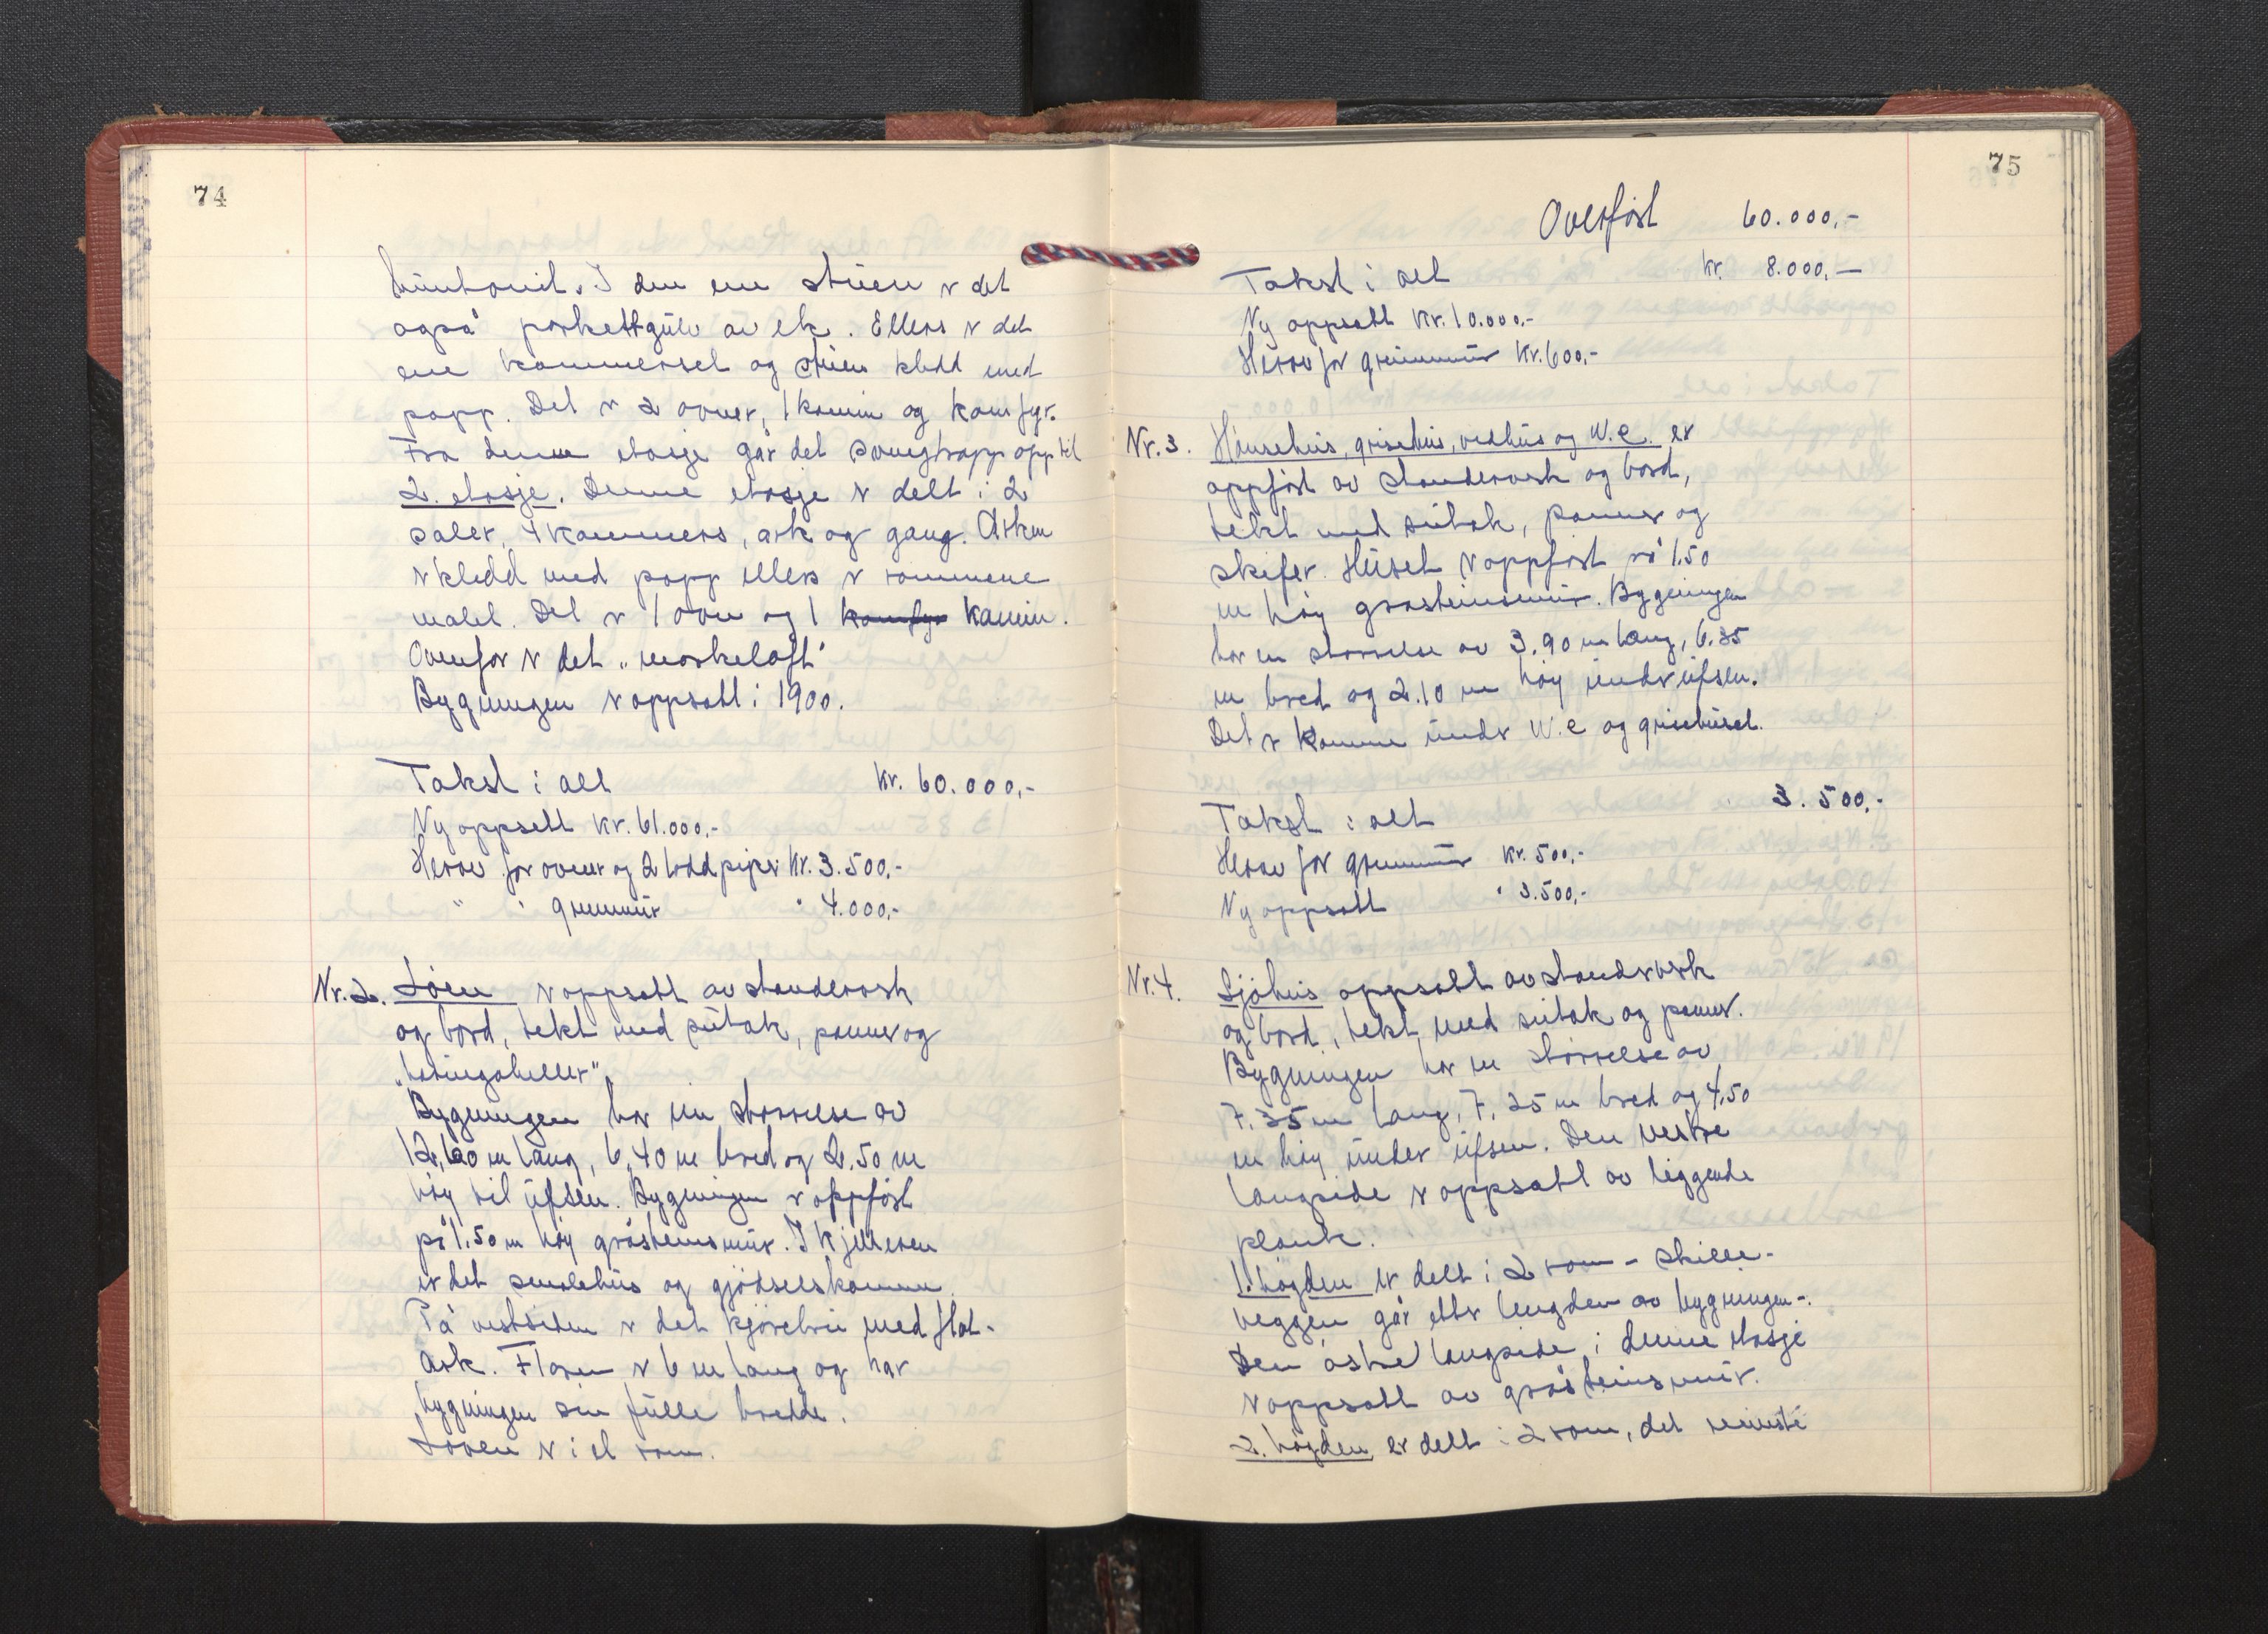 74
huntonit. I den ene stuen er det
også parkettgulv av ek. Ellers er det
ene kammerset og stuen kledd med
papp. Det er 2 ovner, 1 kamin og komfyr.
Fra denne etasje går det svingtrapp opp til
2. etasje. Denne etasje er delt i 2
saler, 4 kammers, ark og gang. Arken
er kledd med papp ellers er rommene
malt. Det er 1 ovn og 1 komfyr kamin.
Ovenfor er det „mørkeloft"
Bygningen er oppsatt i 1900.
Takst i alt kr. 60.000,-
Ny oppsett kr. 61.000,-
Herav for ovner og 2 luddpiper kr. 3.500,-
" " grunnmur " 4.000,-
Nr. 2. Löen er oppsatt av standerverk
og bord, tekt med sutak, panner og
„heller".
Bygningen har en størrelse av
12,60 m lang, 6,40 m bred og 2,50 m
høy til ufsen. Bygningen er oppført
på 1,50 m høy gråsteinsmur. I kjelleren
er det smalehus og gjødselskammer.
På vestsiden er det kjørebru med flat-
ark. Floren er 6 m lang og har
bygningen sin fulle bredde.
Løen er i et rom.
75
Overført 60.000,-
Takst i alt kr. 8.000,-
Ny oppsatt kr. 10.000,-
Herav for grunnmur kr. 600,-
Nr. 3. Hønsehus, grisehus, vedhus og W.c. er
oppført av standerverk og bord,
tekt med sutak, panner og
skifer. Huset er oppført på 1,50
m høy gråsteinsmur. Bygningen
har en størrelse av 3.90 m lang, 6.35
m bred og 2.10 m høy under ufsen.
Det er kamme under W.c og grisehuset.
Takst i alt 3.500,-
Herav for grunnmur kr. 500,-
Ny oppsatt " 3.500,-
Nr. 4. Sjøhus oppsatt av standerverk
og bord, tekt med sutak og panner.
Bygningen har en størrelse av
7.35 m lang, 7,25 m bred og 4,50
m høy under ufsen. Den vestre
langside er oppsatt av liggende
plank.
1. høgden er delt i 2 rom - skille-
veggen går etter lengden av bygningen-.
Den østre langside i denne etasje
er oppsatt av gråsteinsmur.
2. høgden er delt i 2 rom, det minste